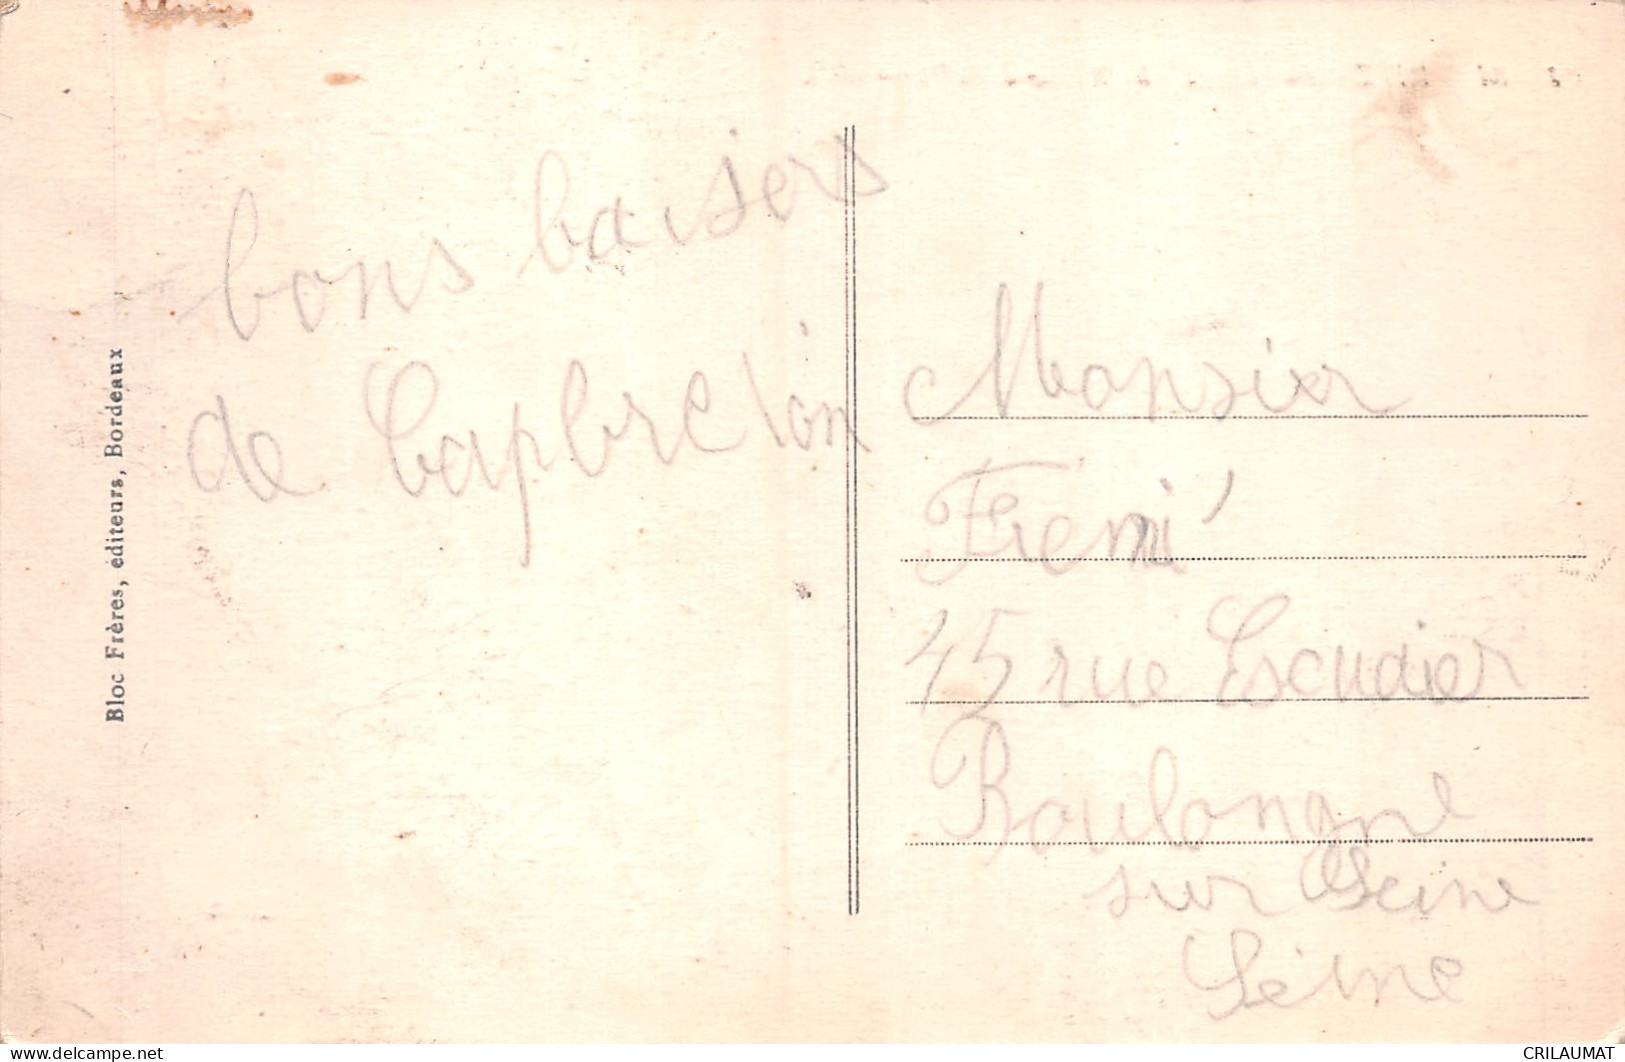 bons baisers
de Capbreton
Bloc Frères, éditeurs, Bordeaux
Monsieur
Frémi
45 rue Escudier
Boulongne
sur Seine
Seine
CRILAUMAT